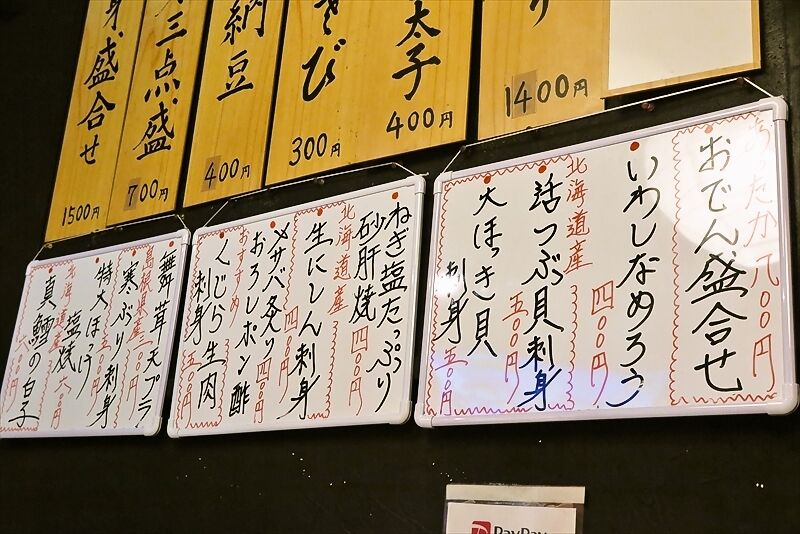 り
1400円
太子
400円
さび
300円
納豆
400円
三点盛
700円
身盛合せ
1500円
あったか 八〇〇円
おでん盛合せ
いわしなめろう
四〇〇円
北海道産
活つぶ貝刺身
五〇〇円
大ほっき貝
刺身 五〇〇円
ねぎ塩たっぷり
砂肝焼 四〇〇円
北海道産
生にしん刺身
四〇〇円
〆サバ炙り 四〇〇円
おろしポン酢
おすすめ
くじら生肉
刺身 五〇〇円
舞茸天プラ
島根県産
寒ぶり刺身
特大ほっけ
塩焼
北海道産
真鱈の白子
PayPay